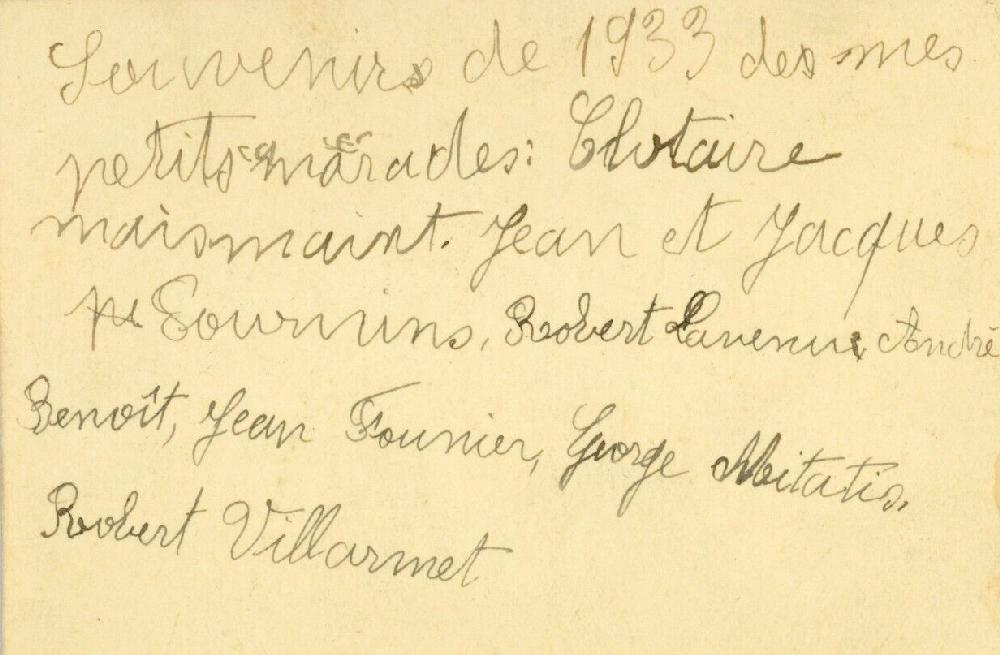 Souvenirs de 1933 des mes
petits camarades: Clotaire
maismaint. Jean et Jacques
Sournins, Robert Lavenue, André
Benoît, Jean Founier, George Mitatis,
Robert Villarmet